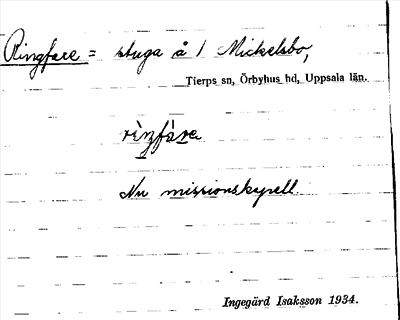 Ringfare = stuga å / Mickelsbo,
Tierps sn, Örbyhus hd, Uppsala län.
Nu missionskapell.
Ingegärd Isaksson 1934.